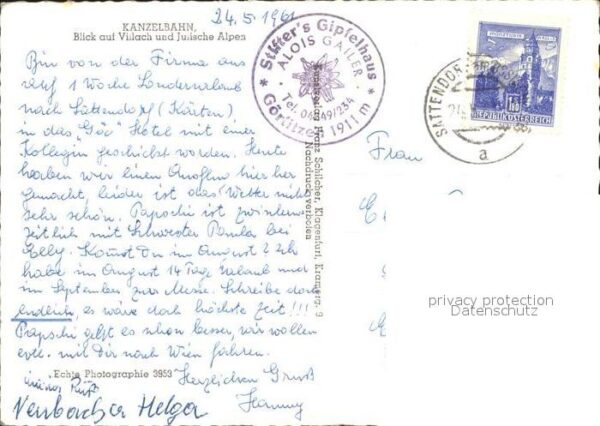 24.5.1961
KANZELBAHN,
Blick auf Villach und Julische Alpen
Bin von der Firma aus
auf 1 Woche Sonderurlaub
nach Sattendorf (Kärten)
in das "Göc" Hotel mit einer
Kollegin geschickt worden. Heute
haben wir einen Ausflug hier her
gemacht, leider ist das Wetter nicht
sehr schön. Papschi ist zwischen
zeitlich mit Schwester Paula bei
Elly. Kommst Du im August? Ich
habe im August 14 Tage Urlaub und
im September zur Messe. Schreibe doch
endlich, es wäre doch höchste Zeit!!!
Papschi geht es schon besser, wir wollen
evtl. mit Dir nach Wien fahren.
Echte Photographie 3953
Herzlichen Gruß
Helga
Stifter's Gipfelhaus
ALOIS GALLER
Tel. 04249/234
Görlitzen 1911 m
Kunstverlag Franz Schilcher, Klagenfurt, Kramerg. 9
Nachdruck verboten
REPUBLIK ÖSTERREICH
SATTENDORF
a
Frau
privacy protection
Datenschutz